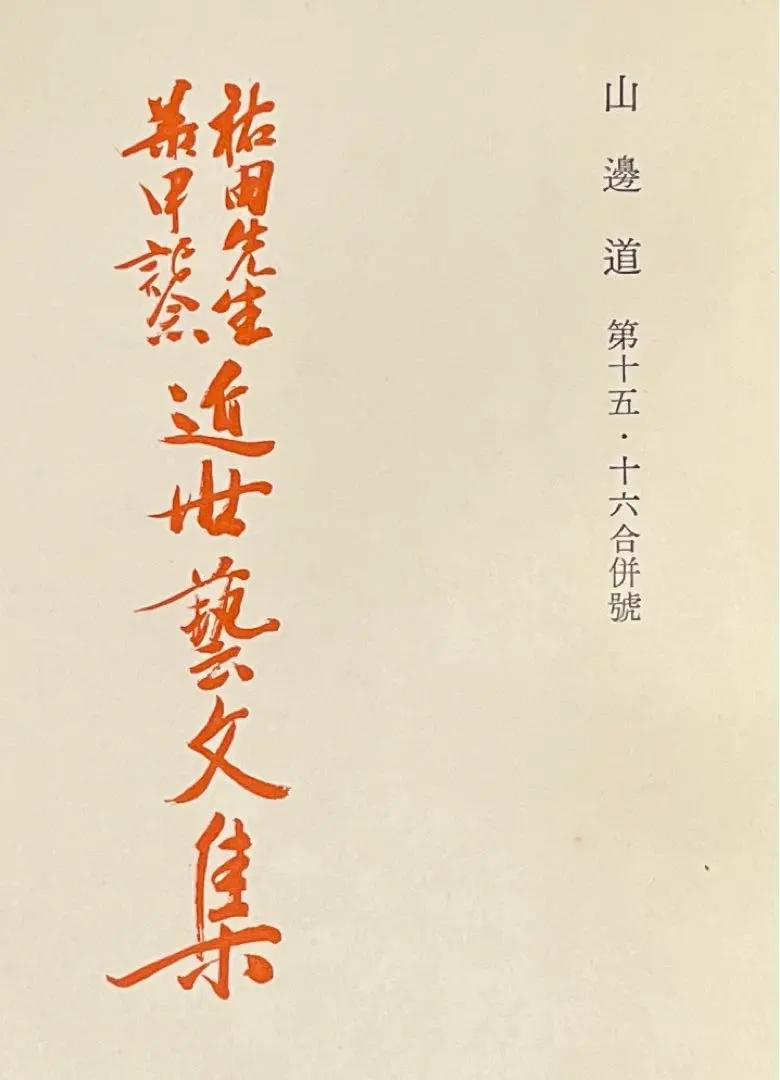 山邊道 第十五・十六合併號
祐田先生
華甲記念
近世藝文集